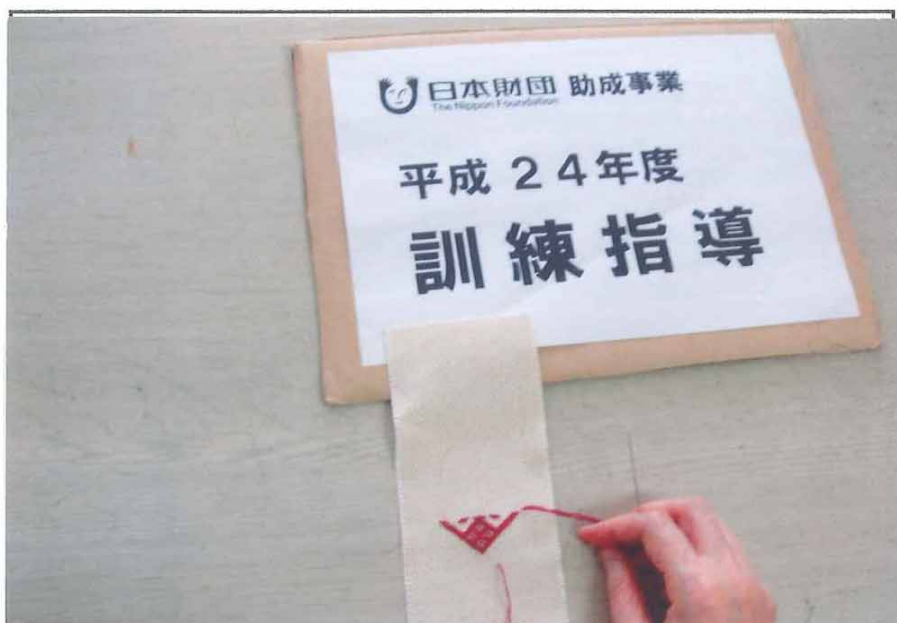 日本財団 助成事業
The Nippon Foundation
平成 24年度
訓練指導